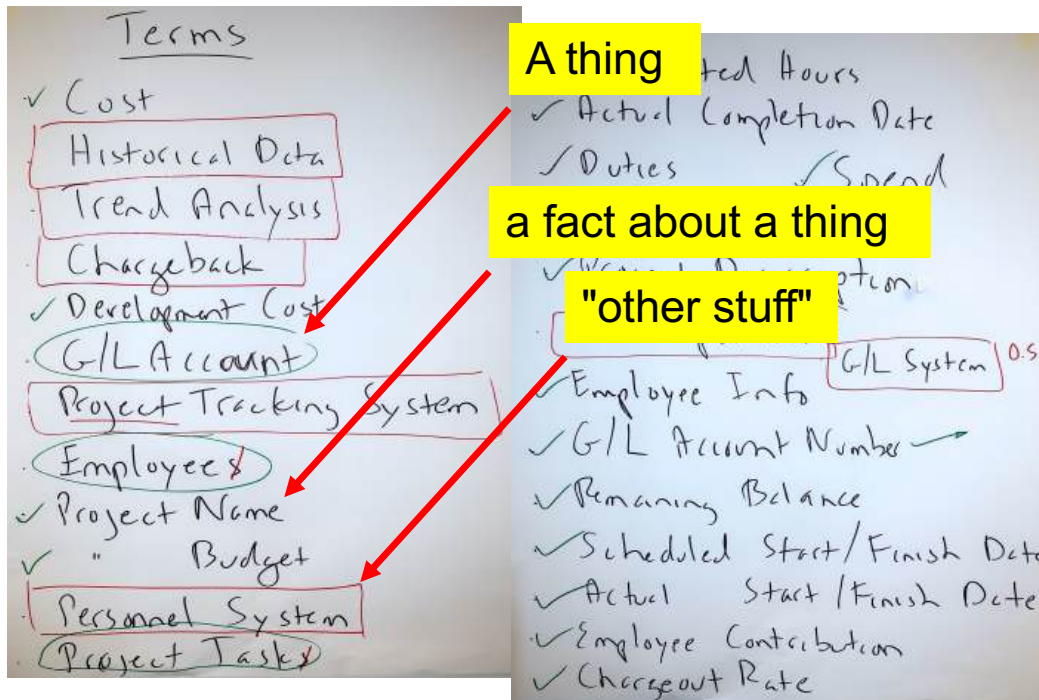 Terms
Cost
Historical Data
Trend Analysis
Chargeback
Development Cost
G/L Account
Project Tracking System
Employees
Project Name
" Budget
Personnel System
Project Tasks
A thing
a fact about a thing
"other stuff"
Hours
Actual Completion Date
Duties
Spend
G/L System
Employee Info
G/L Account Number
Remaining Balance
Scheduled Start/Finish Date
Actual Start/Finish Date
Employee Contribution
Chargeout Rate